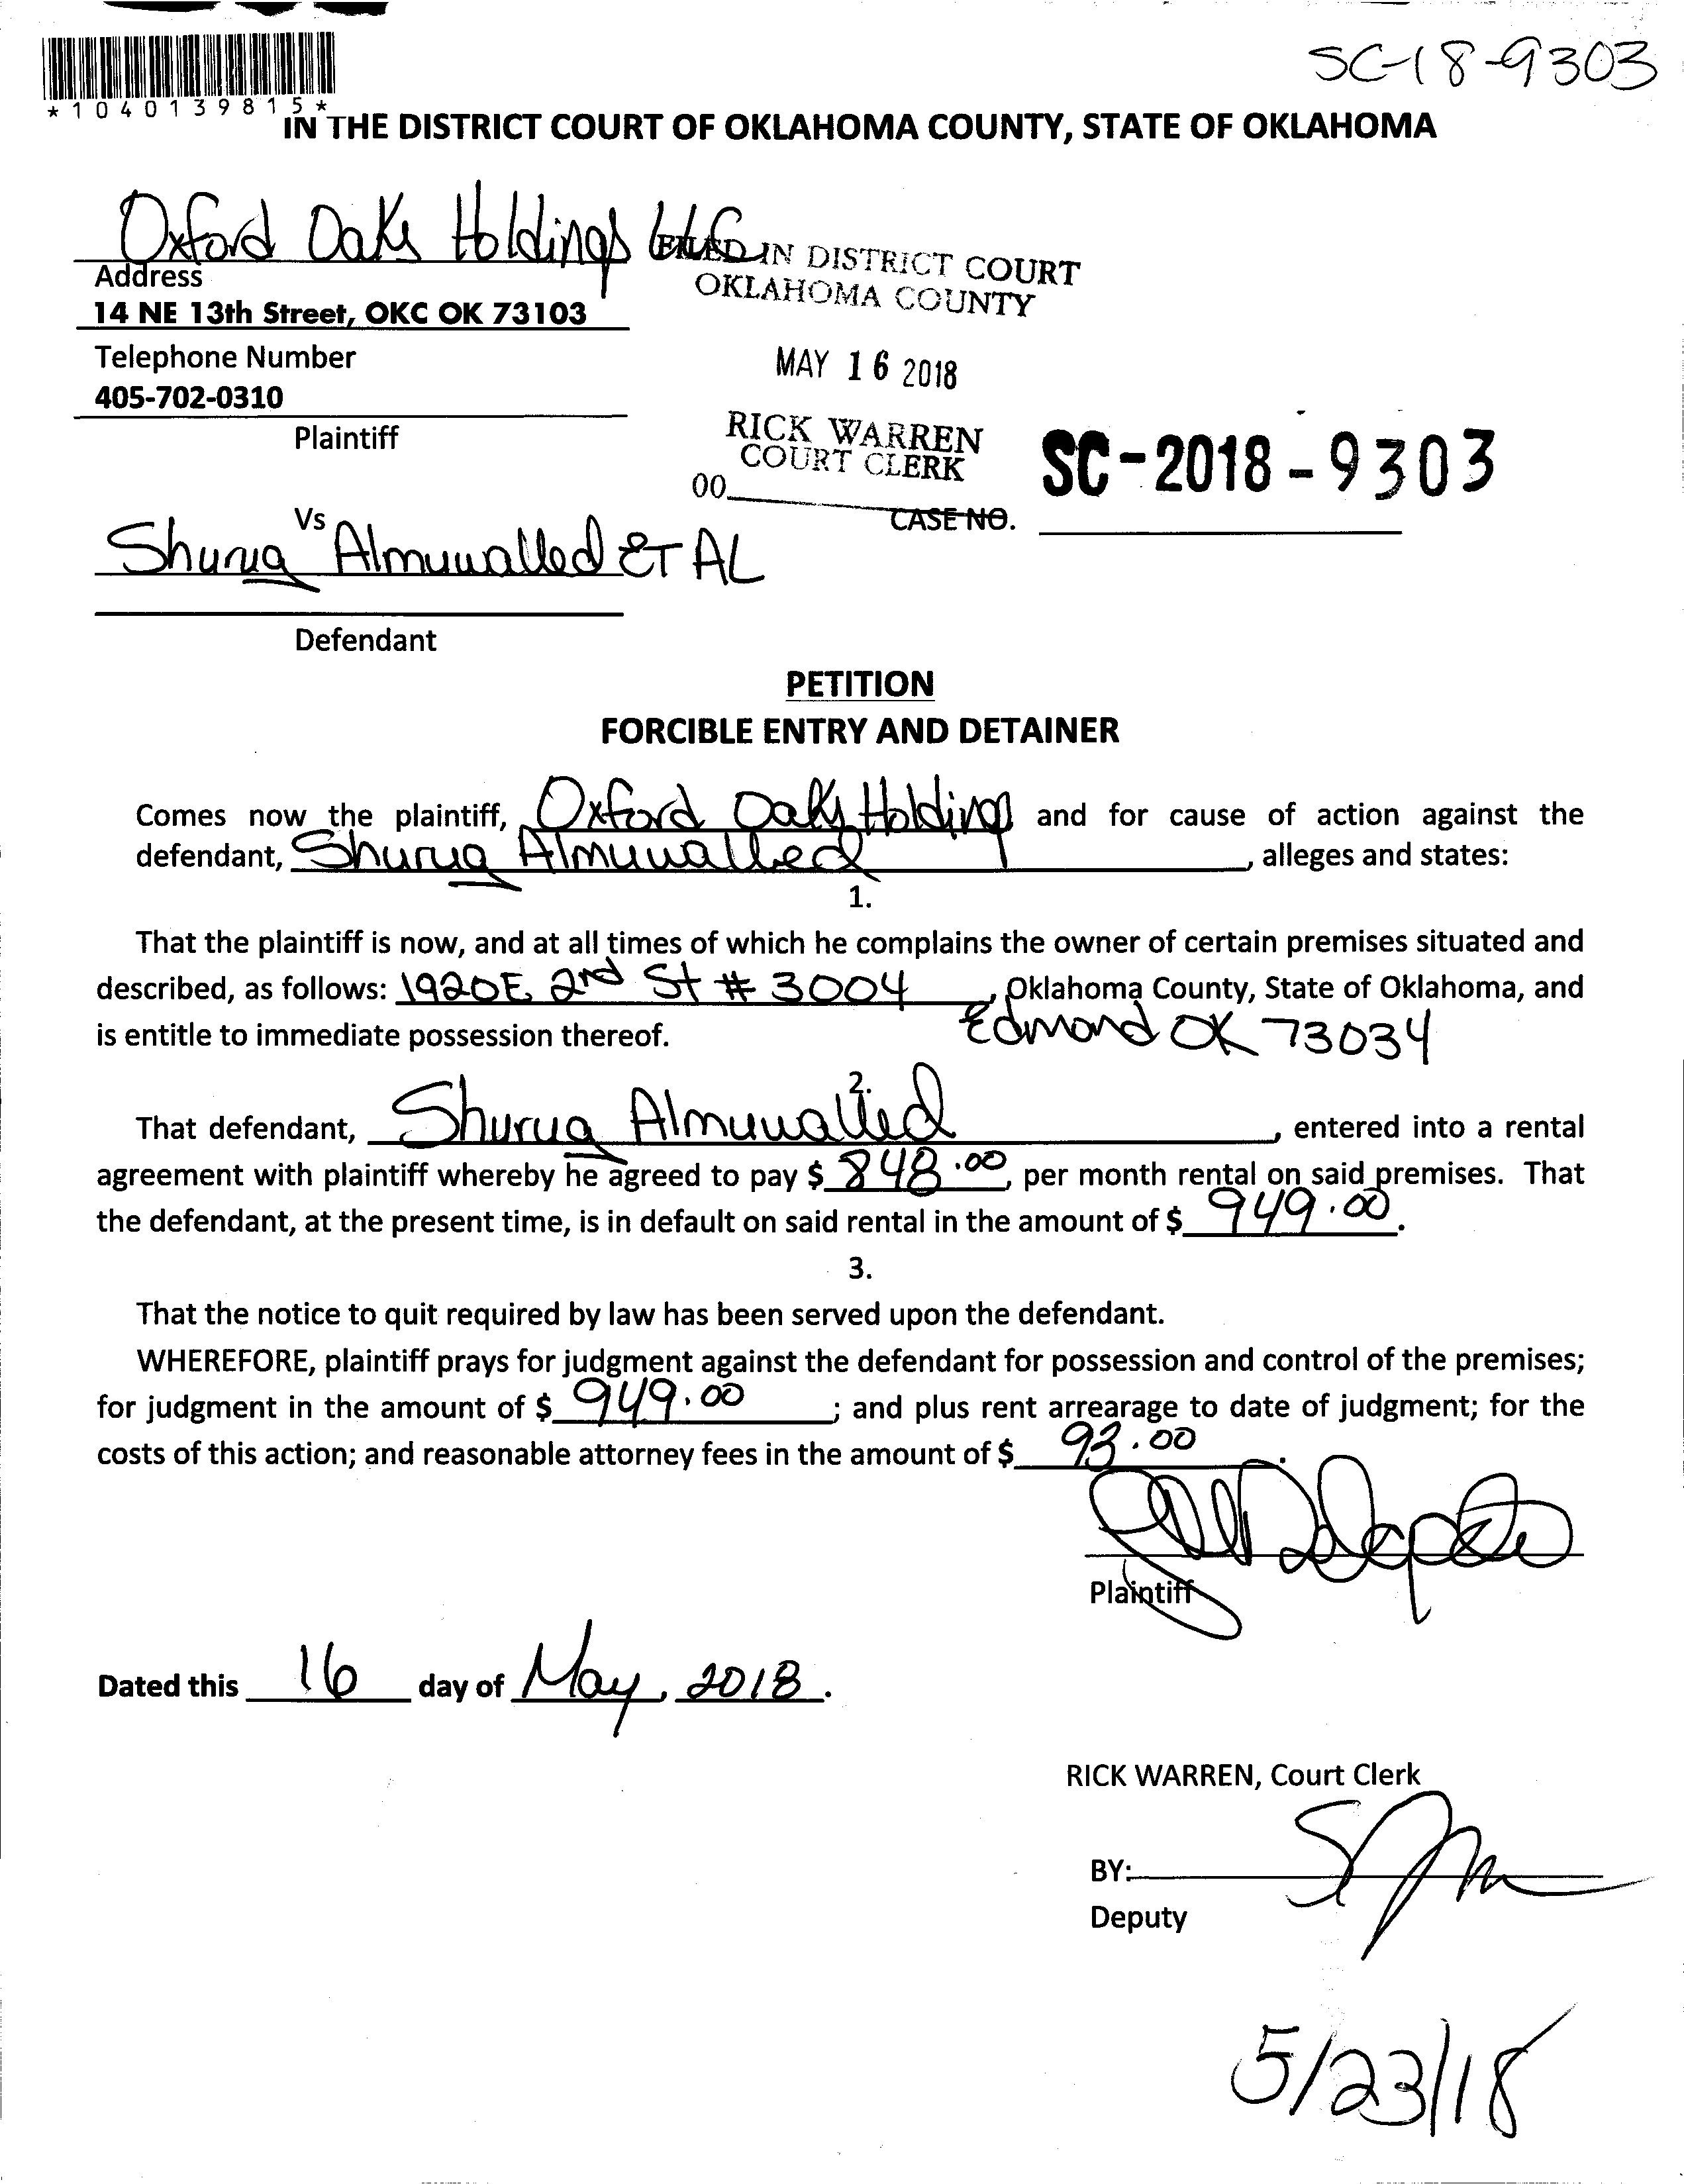 SC-18-9303
*1040139815*
IN THE DISTRICT COURT OF OKLAHOMA COUNTY, STATE OF OKLAHOMA
Oxford Oaks Holdings LLC
FILED IN DISTRICT COURT
OKLAHOMA COUNTY
Address
14 NE 13th Street, OKC OK 73103
Telephone Number
405-702-0310
MAY 16 2018
Plaintiff
RICK WARREN
COURT CLERK
00
SC-2018-9303
CASE NO.
Vs
Shuruq Almuwalled ET AL
Defendant
PETITION
FORCIBLE ENTRY AND DETAINER
Comes now the plaintiff, Oxford Oaks Holdings and for cause of action against the
defendant, Shuruq Almuwalled, alleges and states:
1.
That the plaintiff is now, and at all times of which he complains the owner of certain premises situated and
described, as follows: 1920 E 2nd St # 3004, Oklahoma County, State of Oklahoma, and
is entitle to immediate possession thereof. Edmond OK 73034
2.
That defendant, Shuruq Almuwalled, entered into a rental
agreement with plaintiff whereby he agreed to pay $ 848.00, per month rental on said premises. That
the defendant, at the present time, is in default on said rental in the amount of $ 949.00.
3.
That the notice to quit required by law has been served upon the defendant.
WHEREFORE, plaintiff prays for judgment against the defendant for possession and control of the premises;
for judgment in the amount of $ 949.00; and plus rent arrearage to date of judgment; for the
costs of this action; and reasonable attorney fees in the amount of $ 93.00.
Plaintiff
Dated this 16 day of May, 2018.
RICK WARREN, Court Clerk
BY:
Deputy
5/23/18